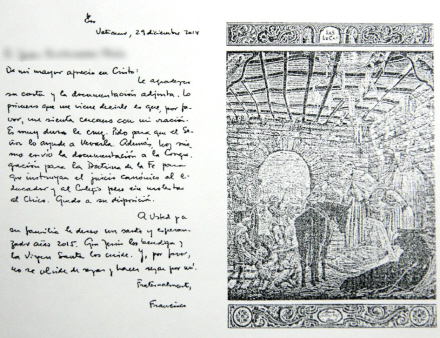 Vaticano, 29 diciembre 2014
De mi mayor aprecio en Cristo:
Le agradezco
su carta y la documentación adjunta. Lo
primero que me viene decirle es que, por fa-
vor, me sienta cercano con mi oración.
Es muy dura la cruz. Pido para que el Se-
ñor lo ayude a llevarla. Además, hoy mis-
mo envío la documentación a la Congre-
gación para la Doctrina de la Fe para
que instruyan el juicio canónico al e-
ducador y al Colegio pero sin molestar
al Chico. Quedo a su disposición.
A Usted y a
su familia le deseo un santo y esperan-
zado año 2015. Que Jesús los bendiga y
la Virgen Santa los cuide. Y, por favor,
no se olvide de rezar y hacer rezar por mí.
Fraternalmente,
Francisco